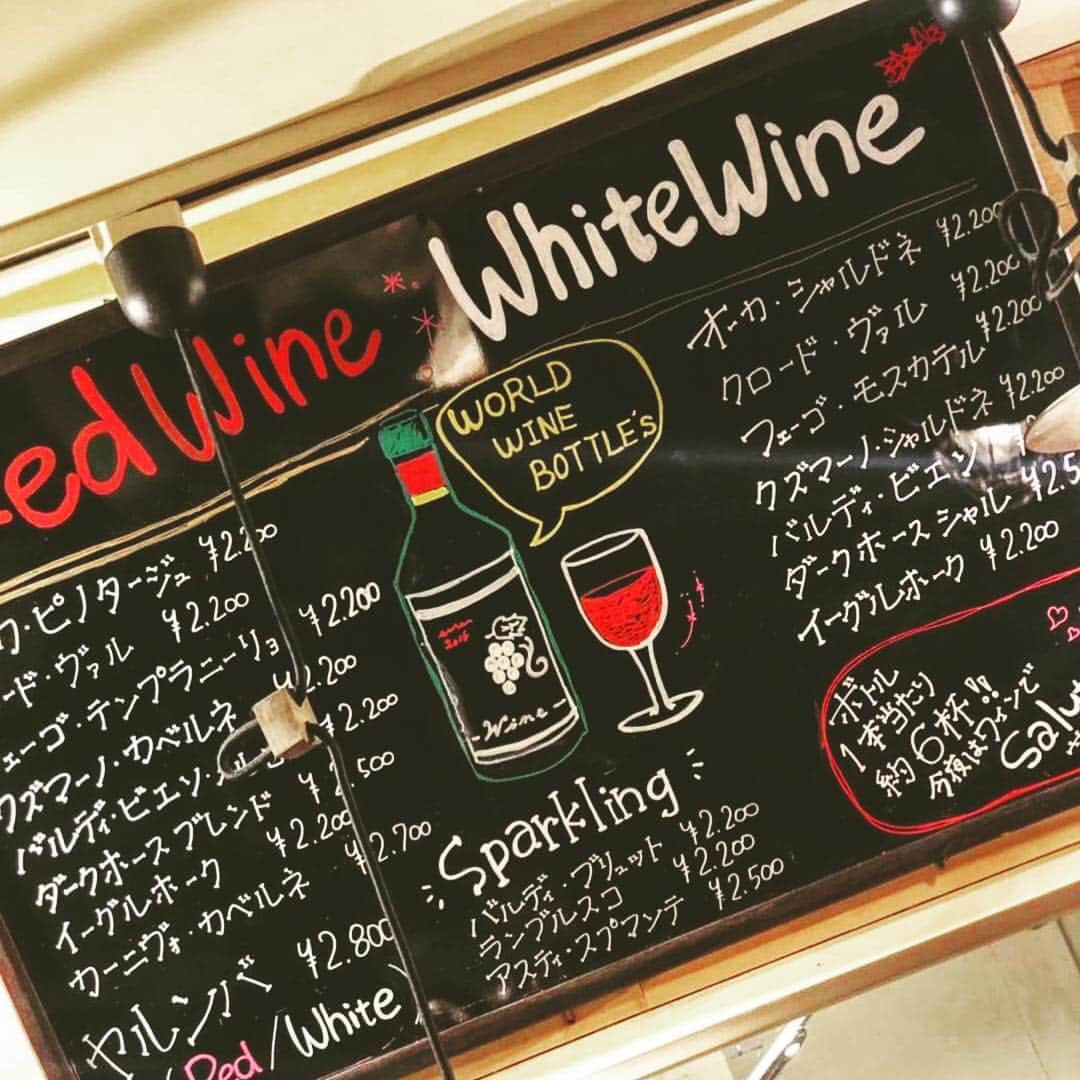 edWine
ワ・ピノタージュ ¥2.200
ード・ヴァル ¥2.200
ェーゴ・テンプラニーリョ ¥2.200
クズマーノ・カベルネ ¥2.200
バルディ・ビエソ・メル ¥2.200
ダークホースブレンド ¥2.500
イーグルホーク ¥2.200
カーニヴォ・カベルネ ¥2.700
ヤルンバ ¥2.800
Red/White
WORLD
WINE
BOTTLE'S
2016
Wine
Sparkling
バルディ・ブリュット ¥2.200
ランブルスコ ¥2.200
アスティ・スプマンテ ¥2.500
WhiteWine
オーカ・シャルドネ ¥2.200
クロード・ヴァル ¥2.200
フェーゴ・モスカテル ¥2.200
クズマーノ・シャルドネ ¥2.200
バルディ・ビエソ
ダークホースシャル ¥2.5
イーグルホーク ¥2.200
ボトル
1本当たり
約6杯!!
今夜はワインで
Salu